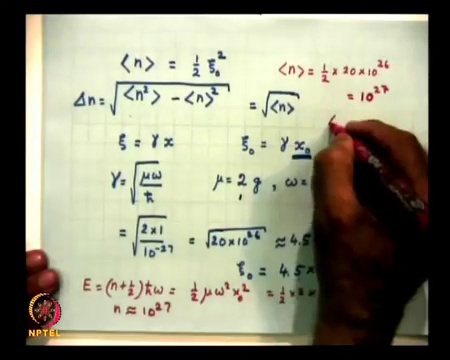 <n> = 1/2 ξ₀²
<n> = 1/2 × 20 × 10²⁶
= 10²⁷
Δn = √(<n²> - <n>²) = √<n>
ξ = γ x
ξ₀ = γ x₀
γ = √(μω/ħ)
μ = 2 g, ω =
= √(2×1/10⁻²⁷) = √(20×10²⁶) ≈ 4.5
ξ₀ = 4.5 ×
E = (n+1/2) ħω = 1/2 μω² x₀² = 1/2 × 2 ×
n ≈ 10²⁷
NPTEL